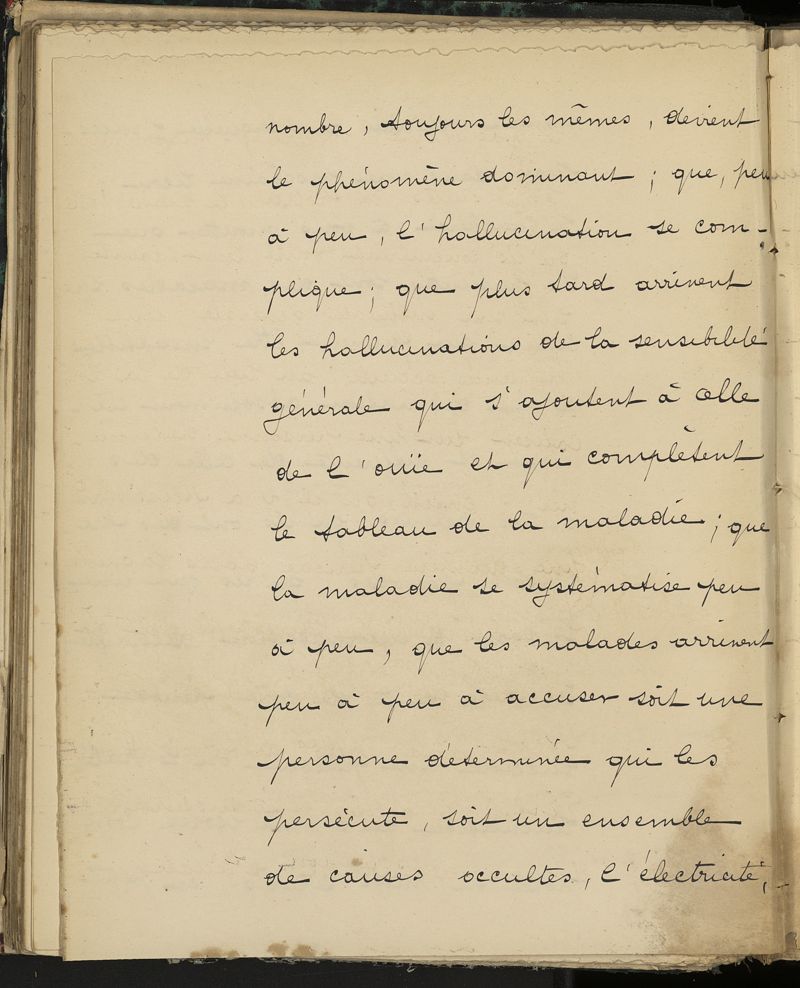 nombre, toujours les mêmes, devient
le phénomène dominant ; que, peu
à peu, l'hallucination se com-
plique ; que plus tard arrivent
les hallucinations de la sensibilité
générale qui s'ajoutent à celle
de l'ouïe et qui complètent
le tableau de la maladie ; que
la maladie se systématise peu
à peu, que les malades arrivent
peu à peu à accuser soit une
personne déterminée qui les
persécute, soit un ensemble
de causes occultes, l'électricité,